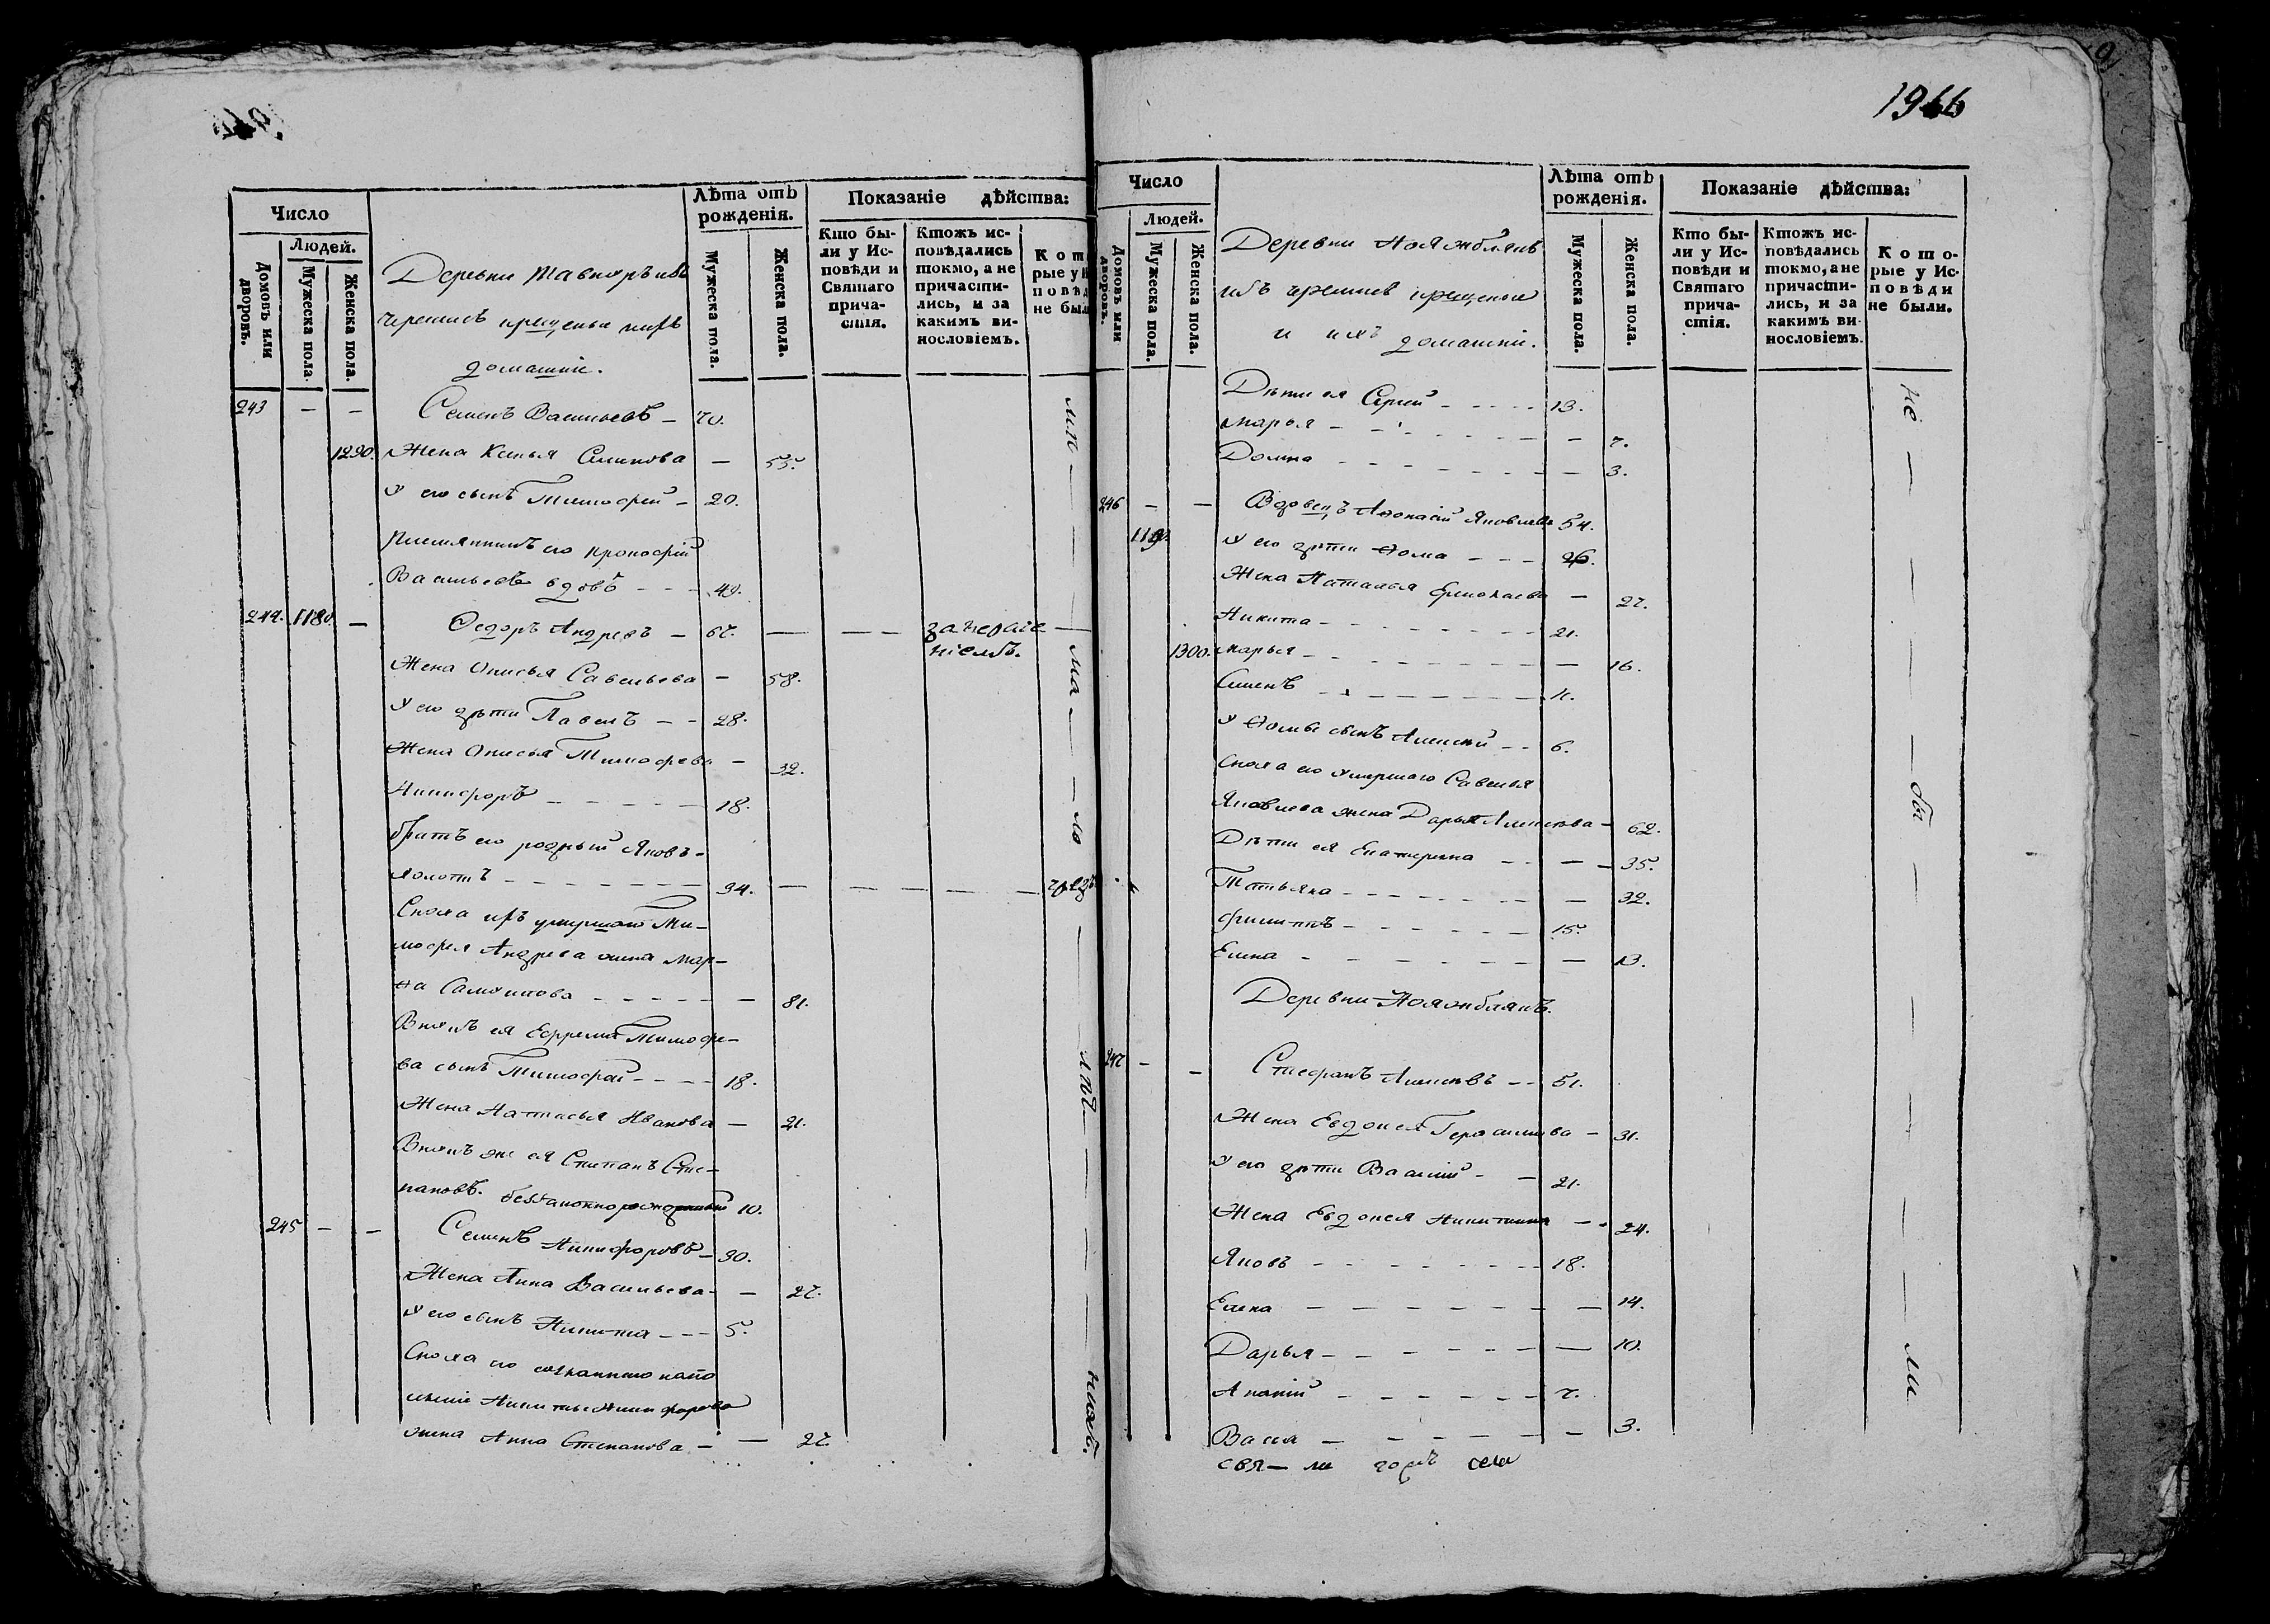 1966
Число
Людей.
Домовъ или дворовъ.
Мужеска пола.
Женска пола.
Деревни
черемисъ крещеныхъ ихъ
домашніе.
Лѣта отъ рожденія.
Мужеска пола.
Женска пола.
Показаніе дѣйства:
Кто бы-
ли у Ис-
повѣди и
Святаго
прича-
стія.
Ктожъ ис-
повѣдались
токмо, а не
причасти-
лись, и за
какимъ ви-
нословіемъ.
Кот
рые у И
повѣд
не был
243 — — Семенъ Васильевъ — 70.
1290. Жена Ксенья Семенова — 55.
У его сынъ Тимофей — 20.
Племянникъ его Прокофій
Васильевъ вдовъ - - - 40.
244. 1180. — Ѳедоръ Андреевъ — 67. — — —
Жена Онисья Савельева — 58.
У его дѣти Павелъ - - 28.
Жена Онисья Тимофеева — 32.
Никифоръ - - - - - 18.
братъ его родный Яковъ -
холостъ - - - - - - 34. — — — — —
Сноха ихъ умершаго Ти-
мофея Андреева жена Мар-
ѳа Самсонова - - - - - — 81.
Внукъ ея Ефрема Тимофе-
ва сынъ Тимофей - - - - 18.
Жена Настасья Иванова — 21.
Внукъ же ея Степанъ Сте-
пановъ. беззаконнорожденный 10.
245 — — Семенъ Никифоровъ — 30.
Жена Анна Васильева - — 27.
У его сынъ Никита - - - 5.
Сноха его сосланнаго на по
селеніе Никиты Никифорова
жена Анна Степанова - — 27.
Число
Людей.
Домовъ или дворовъ.
Мужеска пола.
Женска пола.
Деревни
изъ черемисъ крещеные
и ихъ домашніе.
Лѣта отъ рожденія.
Мужеска пола.
Женска пола.
Показаніе дѣйства:
Кто бы-
ли у Ис-
повѣди и
Святаго
прича-
стія.
Ктожъ ис-
повѣдались
токмо, а не
причасти-
лись, и за
какимъ ви-
нословіемъ.
Кото-
рые у Ис-
повѣди
не были.
Дѣти ея Сергей - - - - 13.
Марья - - - - - - - — 7.
Домна - - - - - - - — 3.
246 — — Вдовецъ Аѳонасій Яковлевъ 54.
1190. У его дѣти Ѳома - - - 26.
Жена Наталья Ермолаева — 27.
Никита - - - - - - - 21.
1300. Марья - - - - - - - — 16.
Семенъ - - - - - - - 11.
У Ѳомы сынъ Алексей - - 6.
Сноха его умершаго Савелья
Яковлева жена Дарья Алексеева - 62.
Дѣти ея Екатерина - - — 35.
Татьяна - - - - - - — 32.
Филиппъ - - - - - - 15.
Елена - - - - - - — 13.
Деревни
247 — — Стефанъ Алексеевъ - - 51.
Жена Евдокея Герасимова - 31.
У его дѣти Василій - — 21.
Жена Евдокея Никитина - - 24.
Яковъ - - - - - - - - 18.
Елена - - - - - - — 14.
Дарья - - - - - - — 10.
Ананій - - - - - - 7.
Васса - - - - - - — 3.
не — — — бы — — — ли